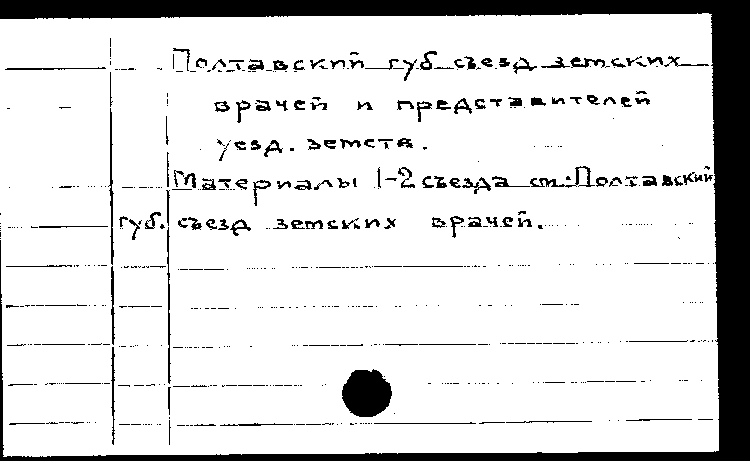 Полтавский губ съезд земских
врачей и представителей
уезд. земств.
Материалы 1-2 съезда см. Полтавский
губ. съезд земских врачей.